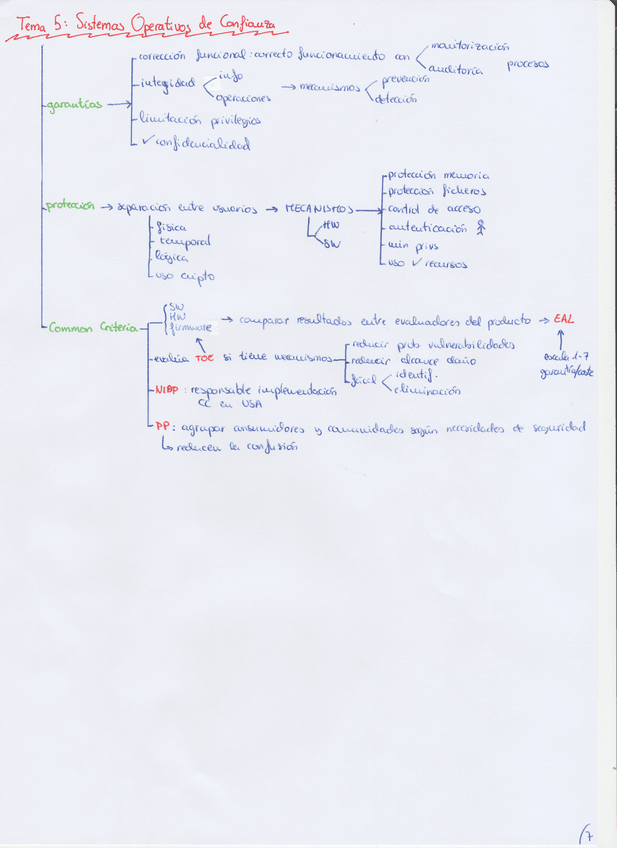 Tema 5: Sistemas Operativos de Confianza
garantías →
corrección funcional: correcto funcionamiento con
monitorización
auditoría
procesos
integridad
info
operaciones
→ mecanismos
prevención
detección
limitación privilegios
✓ confidencialidad
protección → separación entre usuarios → MECANISMOS
física
temporal
lógica
uso cripto
HW
SW
protección memoria
protección ficheros
control de acceso
autenticación
min privs
uso ✓ recursos
Common Criteria
SW
HW
firmware
→ comparar resultados entre evaluadores del producto → EAL
escala 1-7
evalúa TOE si tiene mecanismos
reducir prob vulnerabilidades
reducir alcance daño
fácil
identif.
eliminación
: responsable implementación
CC en USA
PP: agrupar consumidores y comunidades según necesidades de seguridad
↳ reducen la confusión
7